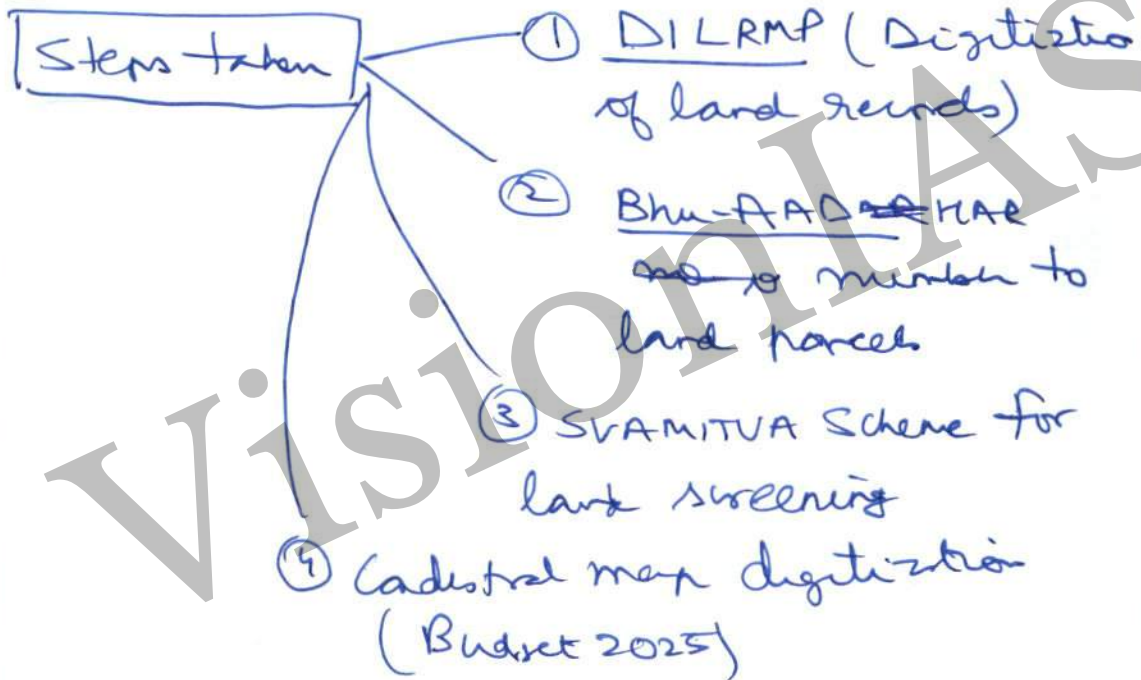 Steps taken
① DILRMP (Digitiztio
of land records)
② Bhu-AADHAR
number to
land parcels
③ SVAMITVA Scheme for
land surveening
④ Cadestral map digitization
(Budget 2025)
VisionIAS